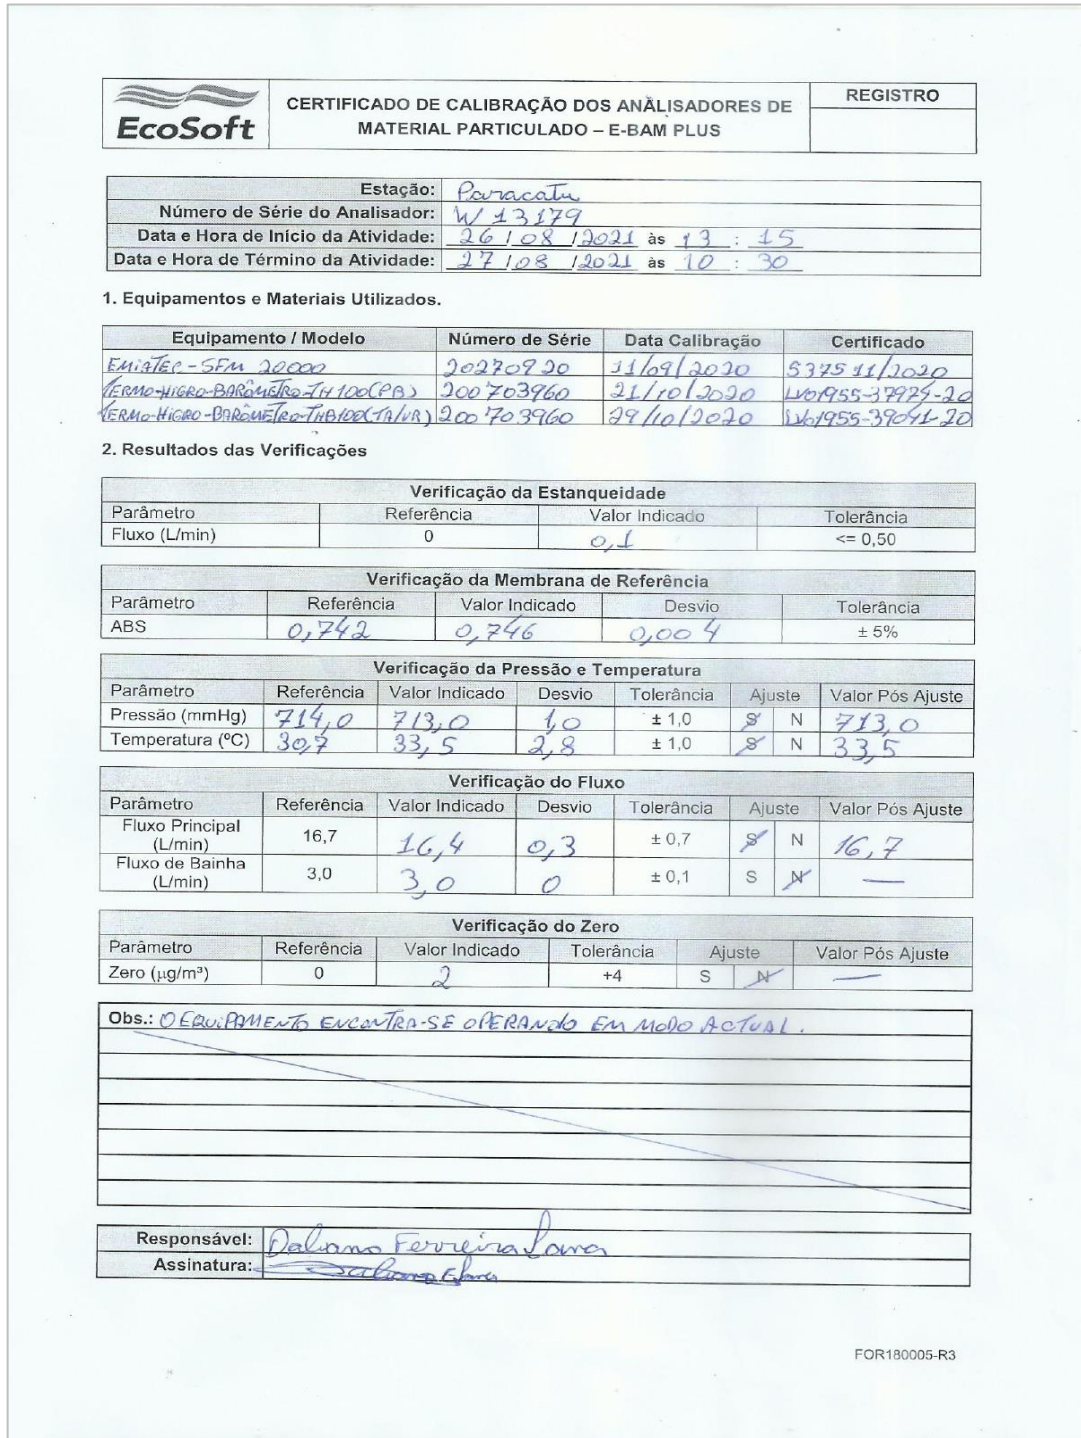 EcoSoft
CERTIFICADO DE CALIBRAÇÃO DOS ANALISADORES DE
MATERIAL PARTICULADO – E-BAM PLUS
REGISTRO
Estação: Paracatu
Número de Série do Analisador: W 13179
Data e Hora de Início da Atividade: 26 / 08 / 2021 às 13 : 15
Data e Hora de Término da Atividade: 27 / 08 / 2021 às 10 : 30
1. Equipamentos e Materiais Utilizados.
Equipamento / Modelo Número de Série Data Calibração Certificado
EMiATEC - SFM 20000 20270920 11/09/2020 S37511/2020
TERMO-HIGRO-BARÔMETRO-TH100(PB) 200703960 21/10/2020
TERMO-HIGRO-BARÔMETRO-THB100(TA/UR) 200703960 29/10/2020
2. Resultados das Verificações
Verificação da Estanqueidade
Parâmetro Referência Valor Indicado Tolerância
Fluxo (L/min) 0 0,1 <= 0,50
Verificação da Membrana de Referência
Parâmetro Referência Valor Indicado Desvio Tolerância
ABS 0,742 0,746 0,004 ± 5%
Verificação da Pressão e Temperatura
Parâmetro Referência Valor Indicado Desvio Tolerância Ajuste Valor Pós Ajuste
Pressão (mmHg) 714,0 713,0 1,0 ± 1,0 S N 713,0
Temperatura (ºC) 30,7 33,5 2,8 ± 1,0 S N 33,5
Verificação do Fluxo
Parâmetro Referência Valor Indicado Desvio Tolerância Ajuste Valor Pós Ajuste
Fluxo Principal
(L/min) 16,7 16,4 0,3 ± 0,7 S N 16,7
Fluxo de Bainha
(L/min) 3,0 3,0 0 ± 0,1 S N —
Verificação do Zero
Parâmetro Referência Valor Indicado Tolerância Ajuste Valor Pós Ajuste
Zero (µg/m³) 0 2 +4 S N —
Obs.: O EQUIPAMENTO ENCONTRA-SE OPERANDO EM MODO ACTUAL.
Responsável: Daliana Ferreira Lana
Assinatura:
FOR180005-R3